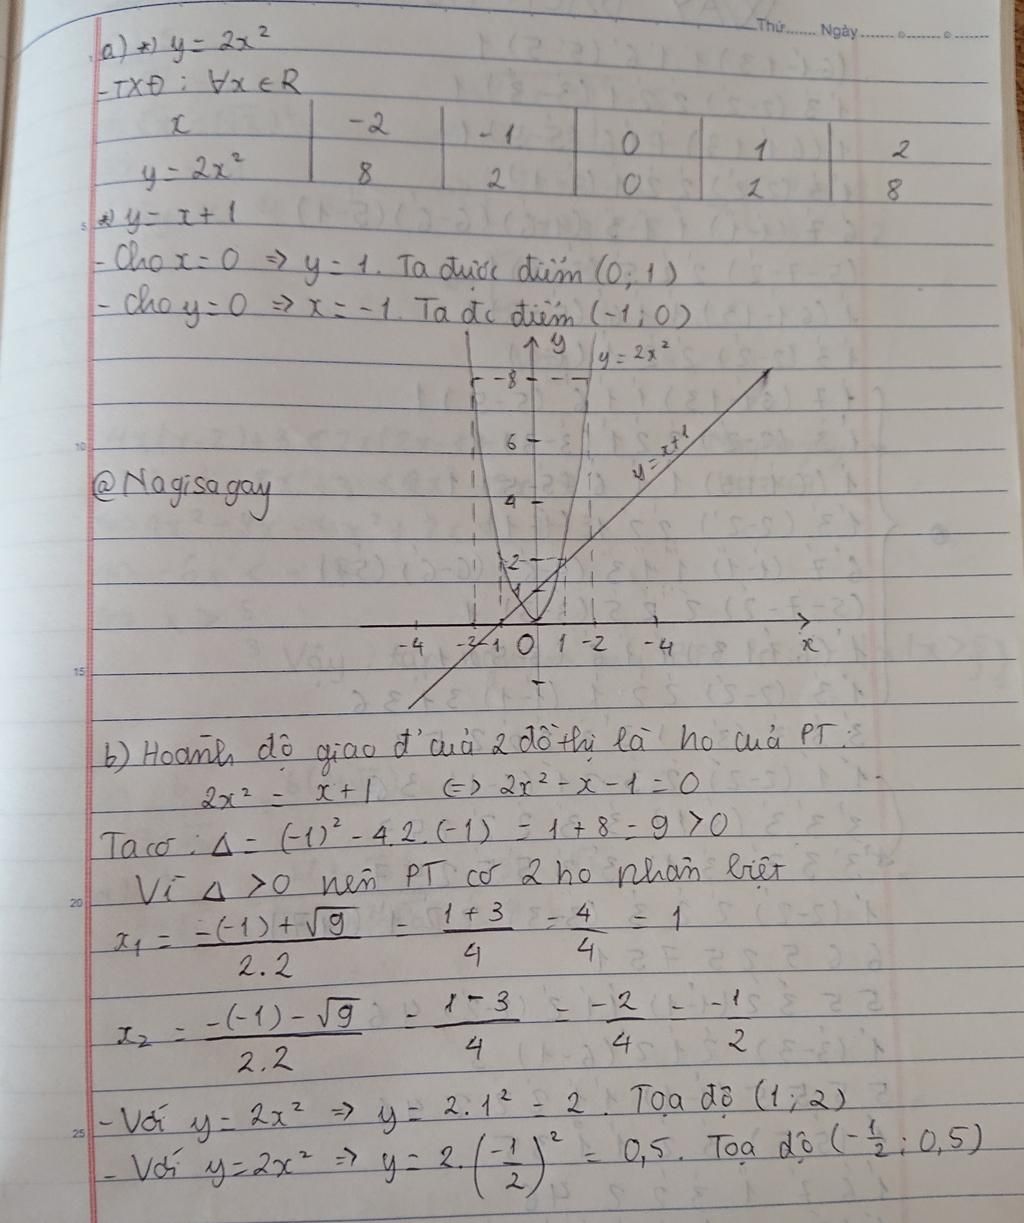 Thứ....... Ngày........ο........ο........
a) *) y = 2x²
- TXĐ : ∀x ∈ R
x -2 -1 0 1 2
y = 2x² 8 2 0 2 8
*) y = x + 1
- Cho x = 0 => y = 1. Ta được điểm (0; 1)
- Cho y = 0 => x = -1. Ta đc điểm (-1; 0)
y y = 2x²
8
6 y = x+1
@Nagisagay
4
2
1
-4 -2 -1 0 1 -2 -4 x
b) Hoành độ giao đ' của 2 đồ thị là no của PT:
2x² = x + 1 <=> 2x² - x - 1 = 0
Ta có : Δ = (-1)² - 4.2.(-1) = 1 + 8 = 9 > 0
Vì Δ > 0 nên PT có 2 no phân biệt
x₁ = (-(-1) + √9)/(2.2) = (1 + 3)/4 = 4/4 = 1
x₂ = (-(-1) - √9)/(2.2) = (1 - 3)/4 = -2/4 = -1/2
- Với y = 2x² => y = 2.1² = 2. Tọa độ (1; 2)
- Với y = 2x² => y = 2.(-1/2)² = 0,5. Tọa độ (-1/2; 0,5)
5
10
15
20
25